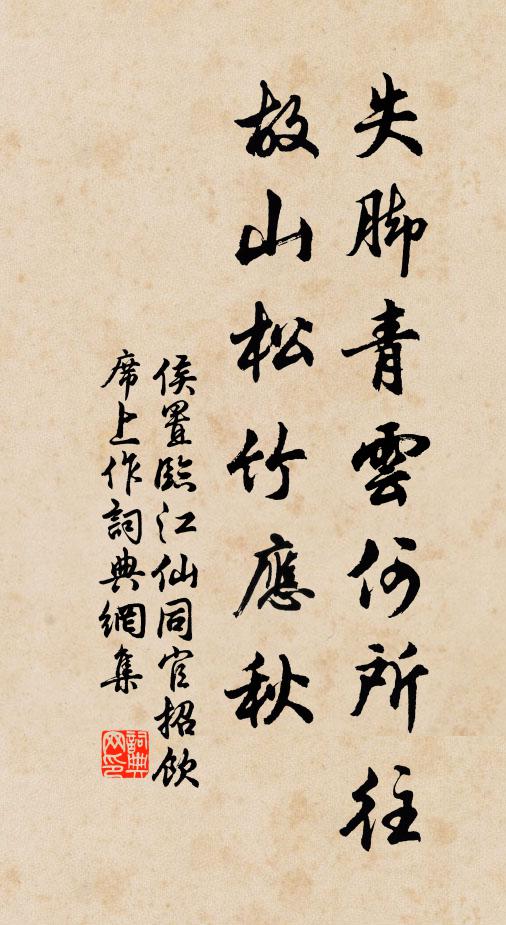 失脚青雲何所往
故山松竹應秋
侯置臨江仙同官招飲
席上作詞典網集
詞典网印